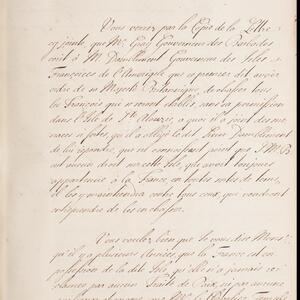 Vous verrez par la Copie de la Lettre
cy jointe, que Mr. Gray Gouverneur des Barbades
écrit à M. Damblimont Gouverneur des Isles
Françoises de l'Amerique que ce premier dit avoir
ordre de sa Majesté Britannique, de chasser tous
les François que se seront établis, sans sa permission
dans l'Isle de Ste. Alouzie, a quoi il a joint des me-
naces si fortes, qu'il a obligé le dit Sieur Damblimont
de lui répondre, que ne connoissant point que S.M.B.
eut aucun droit sur cette Isle, qui avoit toujours
appartenüe à la France, en toutes sortes de tems,
il les y maintiendra contre tous ceux, que voudront
entreprendre de les en chasser.
Vous voulez bien que je vous dise Monsr.
qu'il y a plusieurs années que la France est en
possession de la dit Isle, qu'elle n'a jamais été
reclamée par aucun Traité de Paix, ni par aucune